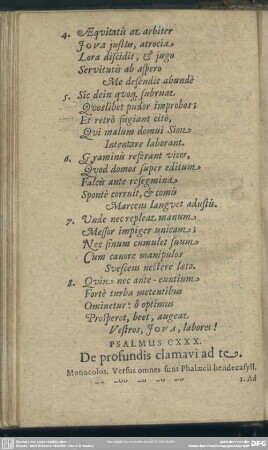 4. Æqvitatis at arbiter
JOVA justus, atrocia
Lora discidit, & jugo
Servitutis ab aspero
Me defendit abundè
5. Sic dein quoq; subruat
Quoslibet pudor improbos;
Et retrò fugiant citò,
Qvi malum domui Sion
Intentare laborant.
6. Graminis referant vices,
Qvod domos super editum
Falcis ante resegmina
Spontè corruit, & comis
Marcens langvet adustis.
7. Unde nec repleat manum
Messor impiger unicam;
Nec sinum cumulet suum
Cum canore manipulos
Svescens nectere læto.
8. Qvin nec ante-euntium
Fortè turba metentibus
Ominetur: ô optimus
Prosperet, beet, augeat
Vestros, JOVA, labores!
PSALMUS CXXX.
De profundis clamavi ad te.
Monocolos. Versus omnes sunt Phalæcii hendecasyll.
1. Ad